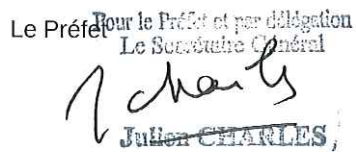 Le Préfet
Pour le Préfet et par délégation
Le Secrétaire Général
Julien CHARLES